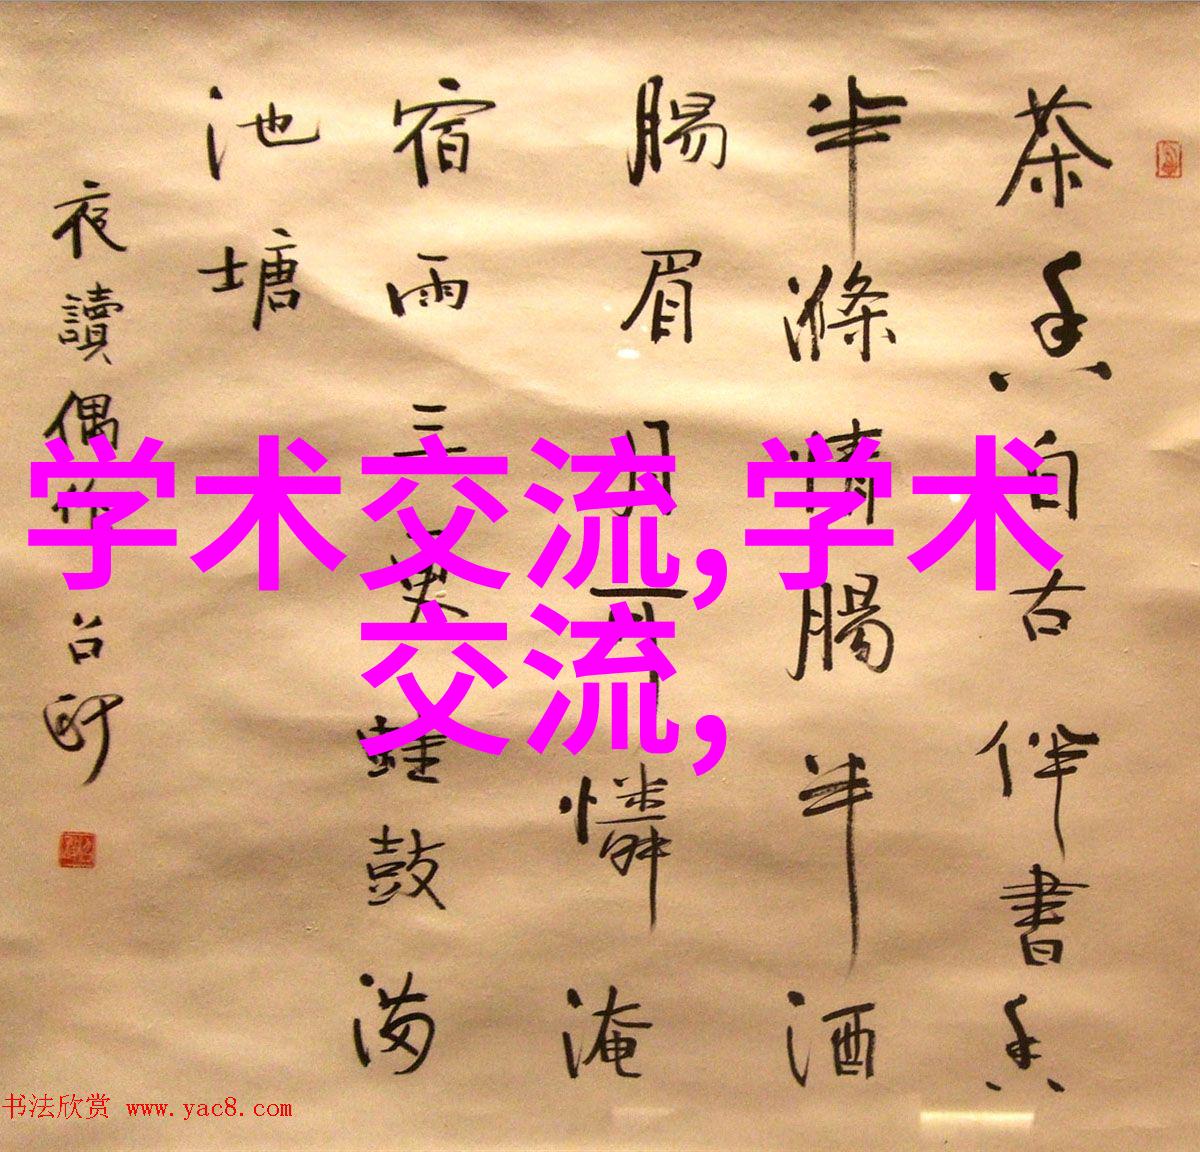 茶香自古伴書香
半滌情腸半酒
腸眉月憐淹
宿雨三更蛙鼓滿
池塘
夜讀偶作台
学术交流,学术
交流,
书法欣赏 www.yac8.com